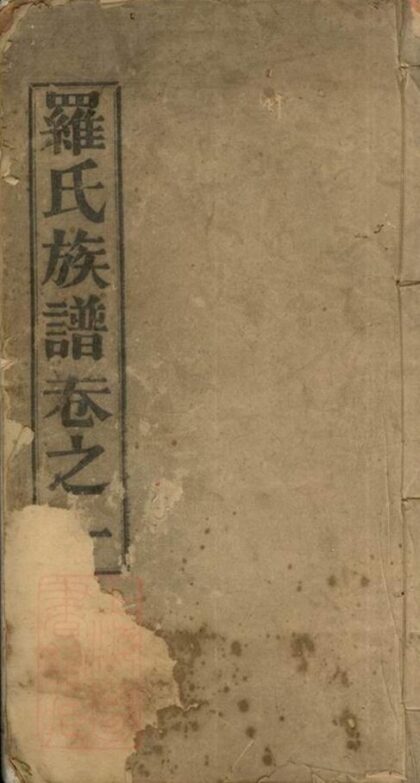 羅氏族譜卷之